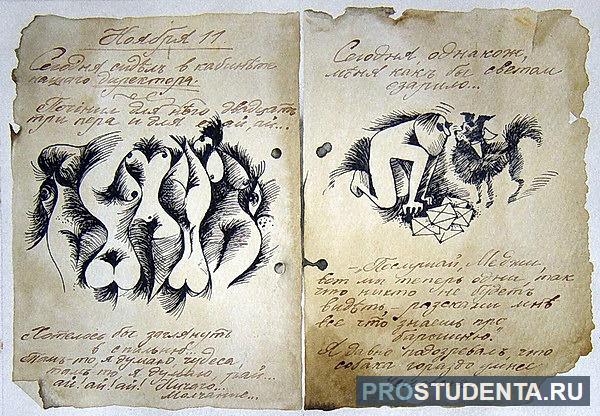 Ноября 11
Сегодня сидѣлъ в кабинѣте
нашего директора.
Починил для него двадцать
три пера и для ай, ай...
Хотелось бы заглянуть
в спальню...
там-то я думаю чудеса,
там-то я думаю, рай...
ай! ай! ай! Ничего...
Молчание...
Сегодня однакож,
меня какъ бы светом
озарило...
„Послушай, Меджи,
вот мы теперь одни, так
что никто не будет
видеть, разскажи мнѣ
все что знаешь про
барышню.
Я давно подозревал, что
собака гораздо умнее
PROSTUDENTA.RU